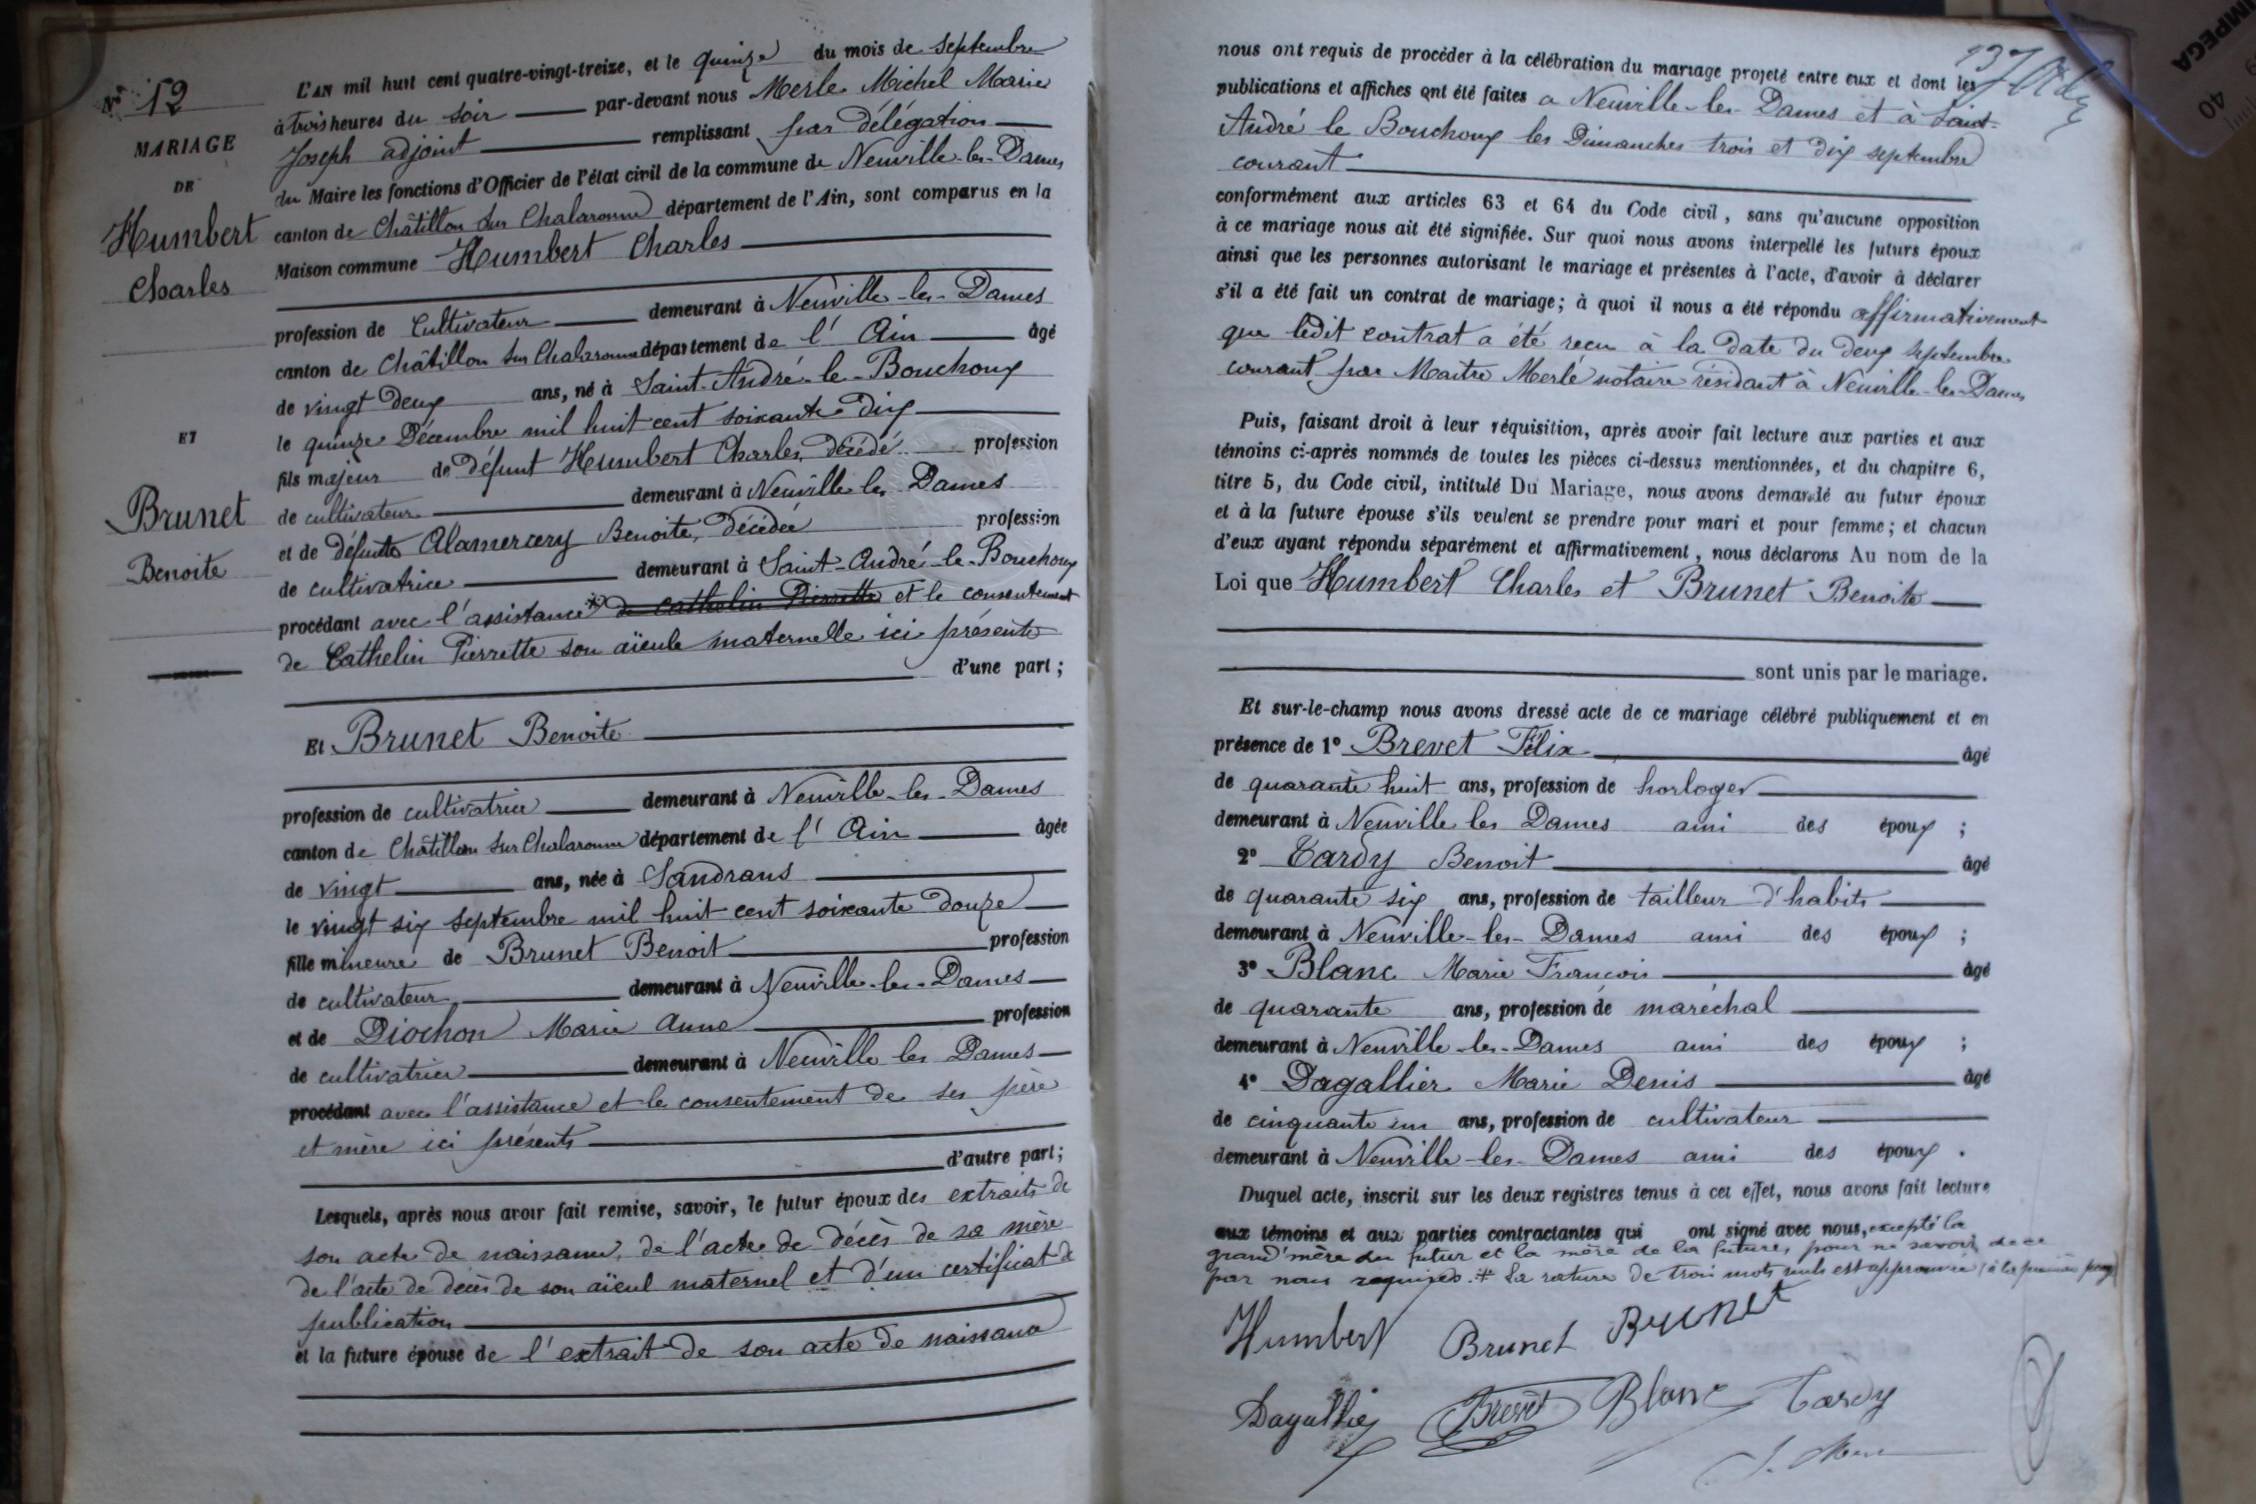 N° 12
MARIAGE
DE
Humbert
Charles
ET
Brunet
Benoite
L'AN mil huit cent quatre-vingt-treize, et le quinze du mois de septembre
à trois heures du soir par-devant nous Merle Michel Marie
Joseph adjoint remplissant par délégation
du Maire les fonctions d'Officier de l'état civil de la commune de Neuville-les-Dames
canton de Châtillon sur Chalaronne département de l'Ain, sont comparus en la
Maison commune Humbert Charles
profession de Cultivateur demeurant à Neuville-les-Dames
canton de Châtillon sur Chalaronne département de l'Ain âgé
de vingt deux ans, né à Saint-André-le-Bouchoux
le quinze Décembre mil huit cent soixante dix
fils majeur de défunt Humbert Charles, décédé profession
de cultivateur demeurant à Neuville les Dames
et de défunte Alamercery Benoite, décédée profession
de cultivatrice demeurant à Saint-André-le-Bouchoux
procédant avec l'assistance * de Cathelin Pierrette et le consentement
de Cathelin Pierrette son aïeule maternelle ici présente
d'une part;
Et Brunet Benoite
profession de cultivatrice demeurant à Neuville-les-Dames
canton de Châtillon sur Chalaronne département de l'Ain âgée
de vingt ans, née à Sandrans
le vingt six septembre mil huit cent soixante douze
fille mineure de Brunet Benoit profession
de cultivateur demeurant à Neuville-les-Dames
et de Diochon Marie Anne profession
de cultivatrice demeurant à Neuville les Dames
procédant avec l'assistance et le consentement de ses père
et mère ici présents
d'autre part;
Lesquels, après nous avoir fait remise, savoir, le futur époux des extraits de
son acte de naissance, de l'acte de décès de sa mère
de l'acte de décès de son aïeul maternel et d'un certificat de
publication
et la future épouse de l'extrait de son acte de naissance
nous ont requis de procéder à la célébration du mariage projeté entre eux et dont les
publications et affiches ont été faites a Neuville-les-Dames et à Saint-
André le Bouchoux les Dimanches trois et dix septembre
courant
conformément aux articles 63 et 64 du Code civil, sans qu'aucune opposition
à ce mariage nous ait été signifiée. Sur quoi nous avons interpellé les futurs époux
ainsi que les personnes autorisant le mariage et présentes à l'acte, d'avoir à déclarer
s'il a été fait un contrat de mariage; à quoi il nous a été répondu affirmativement
que ledit contrat a été recu à la date du deux septembre
courant par Maitre Merle notaire résidant à Neuville-les-Dames
Puis, faisant droit à leur réquisition, après avoir fait lecture aux parties et aux
témoins ci-après nommés de toutes les pièces ci-dessus mentionnées, et du chapitre 6,
titre 5, du Code civil, intitulé Du Mariage, nous avons demandé au futur époux
et à la future épouse s'ils veulent se prendre pour mari et pour femme; et chacun
d'eux ayant répondu séparément et affirmativement, nous déclarons Au nom de la
Loi que Humbert Charles et Brunet Benoite
sont unis par le mariage.
Et sur-le-champ nous avons dressé acte de ce mariage célébré publiquement et en
présence de 1° Brevet Félix âgé
de quarante huit ans, profession de horloger
demeurant à Neuville les Dames ami des époux ;
2° Tardy Benoit âgé
de quarante six ans, profession de tailleur d'habits
demeurant à Neuville-les-Dames ami des époux ;
3° Blanc Marie François âgé
de quarante ans, profession de maréchal
demeurant à Neuville-les-Dames ami des époux ;
4° Dagallier Marie Denis âgé
de cinquante un ans, profession de cultivateur
demeurant à Neuville-les-Dames ami des époux .
Duquel acte, inscrit sur les deux registres tenus à cet effet, nous avons fait lecture
aux témoins et aux parties contractantes qui ont signé avec nous, excepté la
grand'mère du futur et la mère de la future, pour ne savoir de ce
par nous requises. * La rature de trois mots nuls est approuvée (à la première page)
Humbert Brunet Brunet
Dagallier Brevet Blanc Tardy
J. Merle
IMPEGA
40